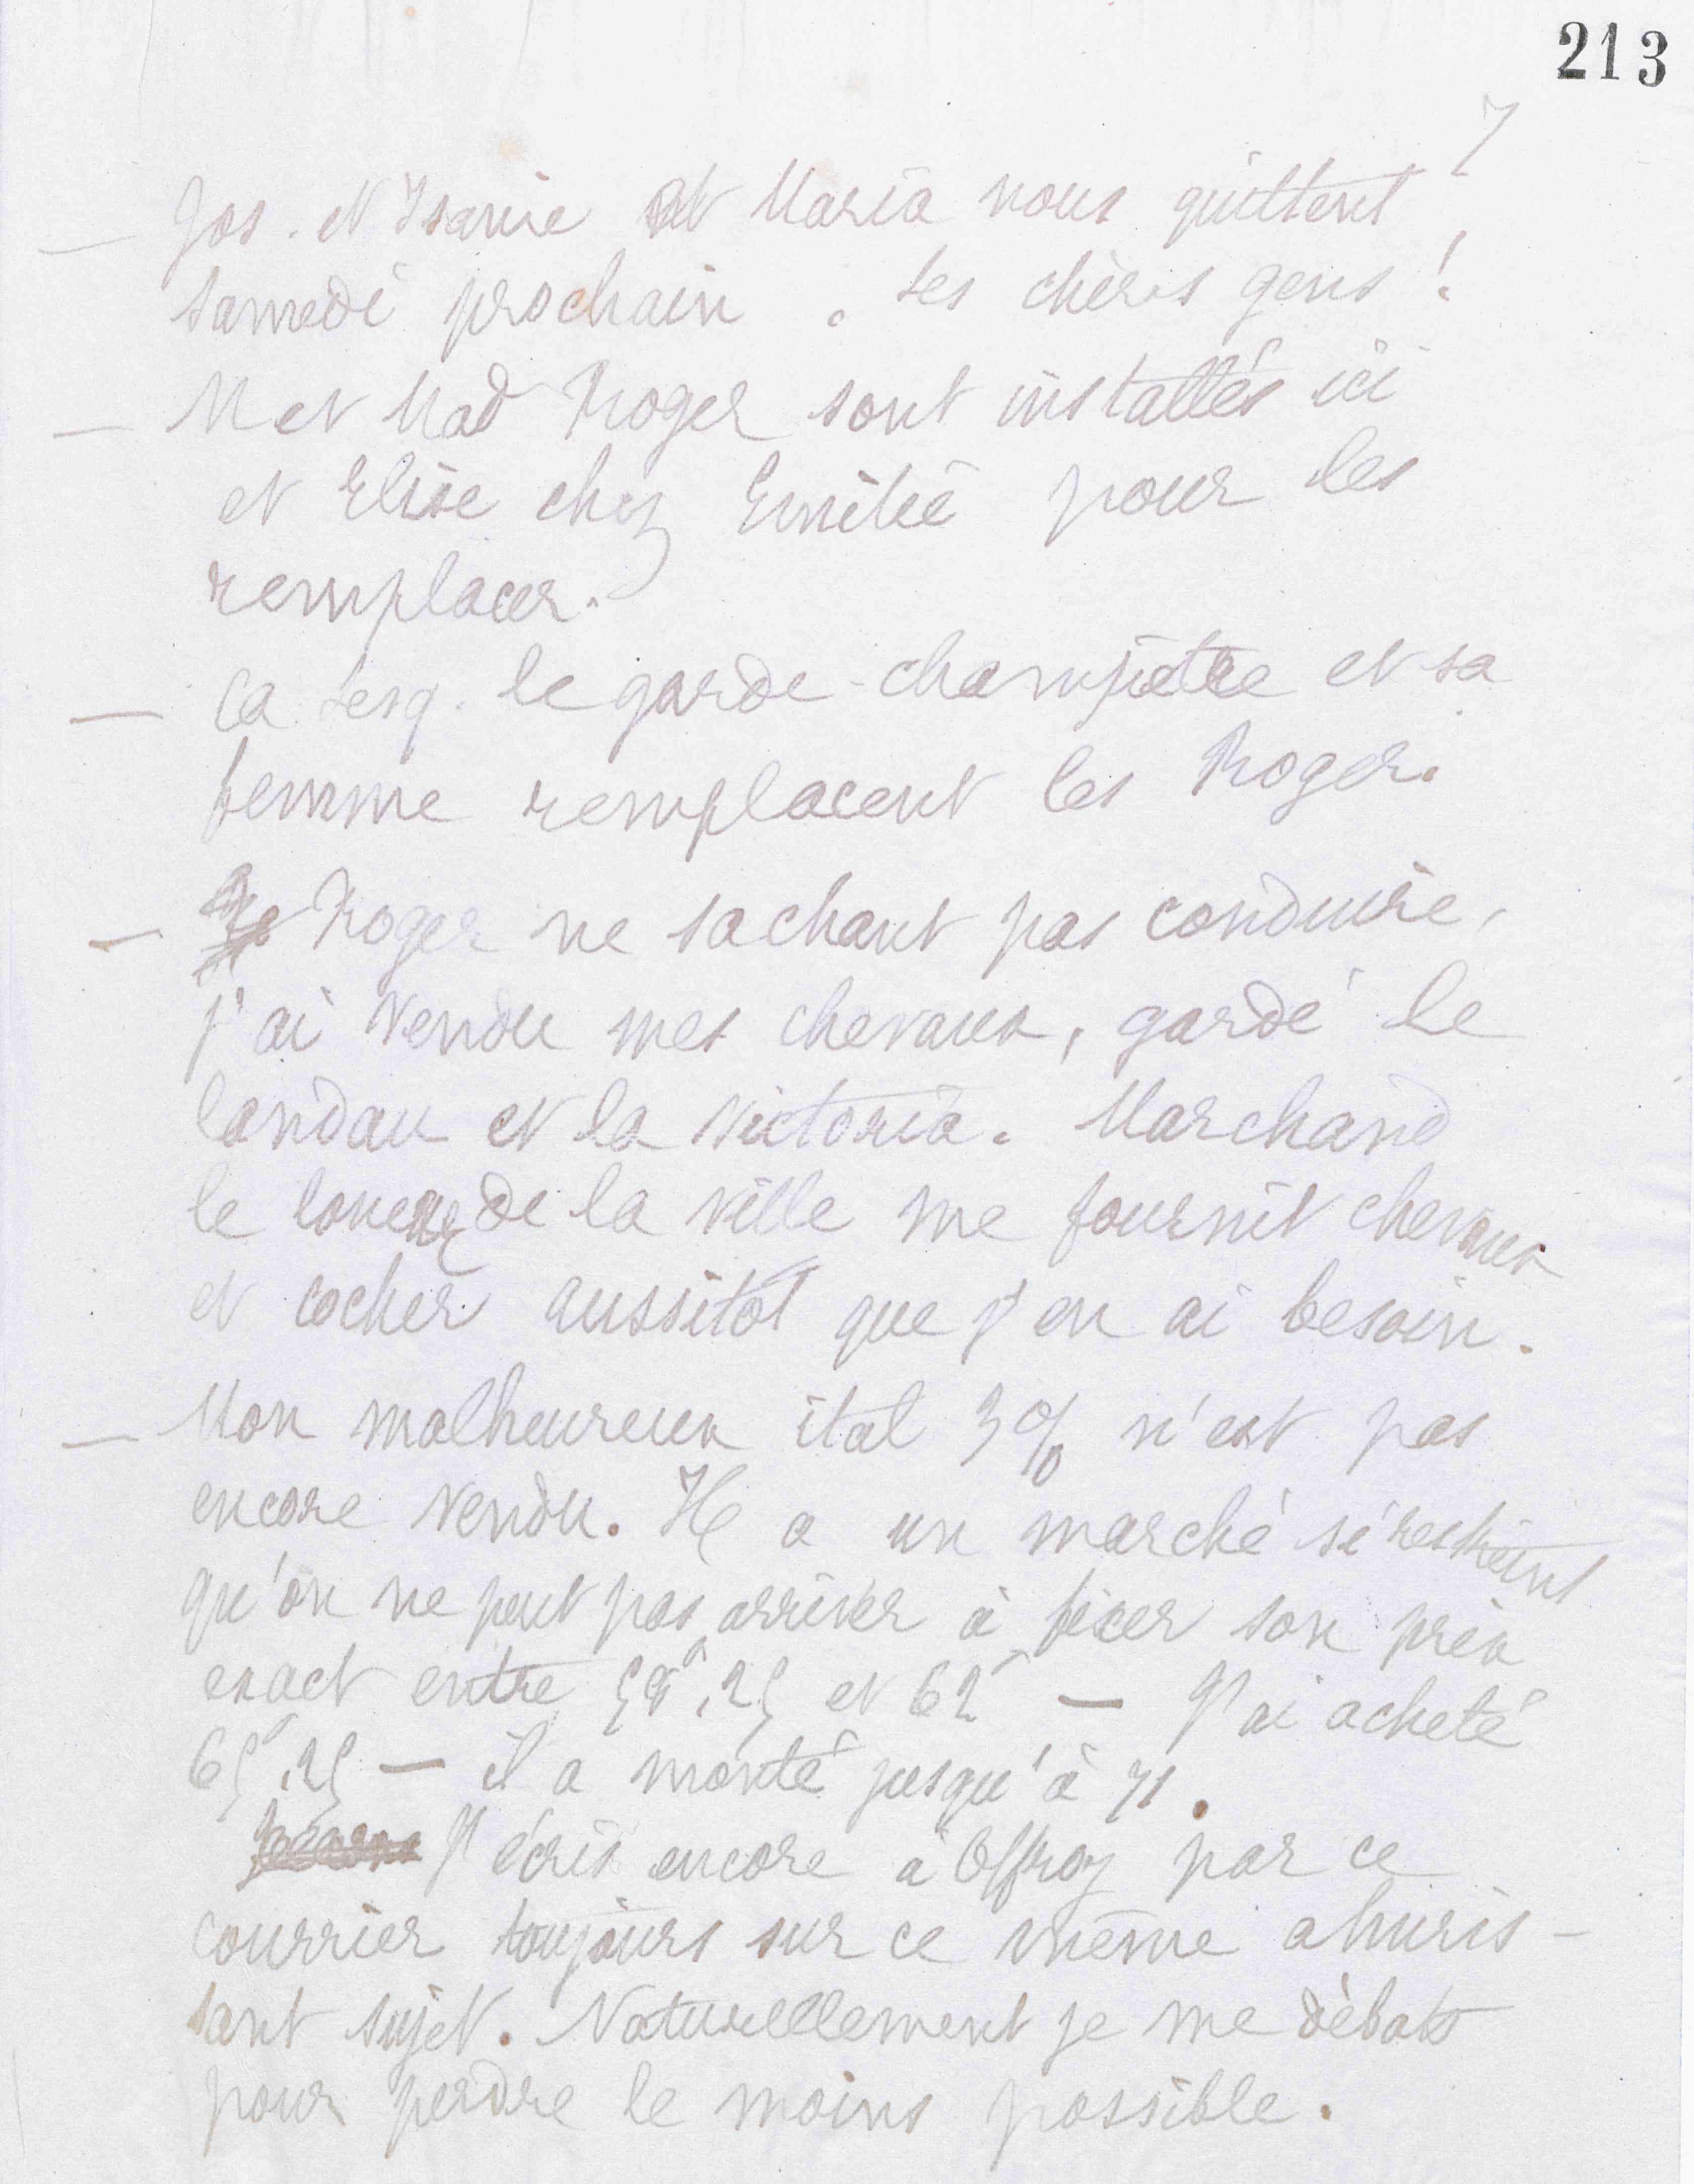 213
7
— Jos. et Isaure et Maria nous quittent
samedi prochain. Les chers gens !
— M et Mad Roger sont installés ici
et Elise chez Emilie pour les
remplacer.
— Ca Lesq. le garde-champêtre et sa
femme remplacent les Roger.
— Roger ne sachant pas conduire,
j'ai vendu mes chevaux, gardé le
landau et la victoria. Marchand
le loueur de la ville me fournit chevaux
et cocher aussitôt que j'en ai besoin.
— Mon malheureux ital 3% n'est pas
encore vendu. Il a un marché si restreint
qu'on ne peut pas arriver à fixer son prix
exact entre 58f,25 et 62f — J'ai acheté
65f,25 — il a monté jusqu'à 71.
J'écris encore à Offroy par ce
courrier toujours sur ce même ahuris-
sant sujet. Naturelllement je me débats
pour perdre le moins possible.